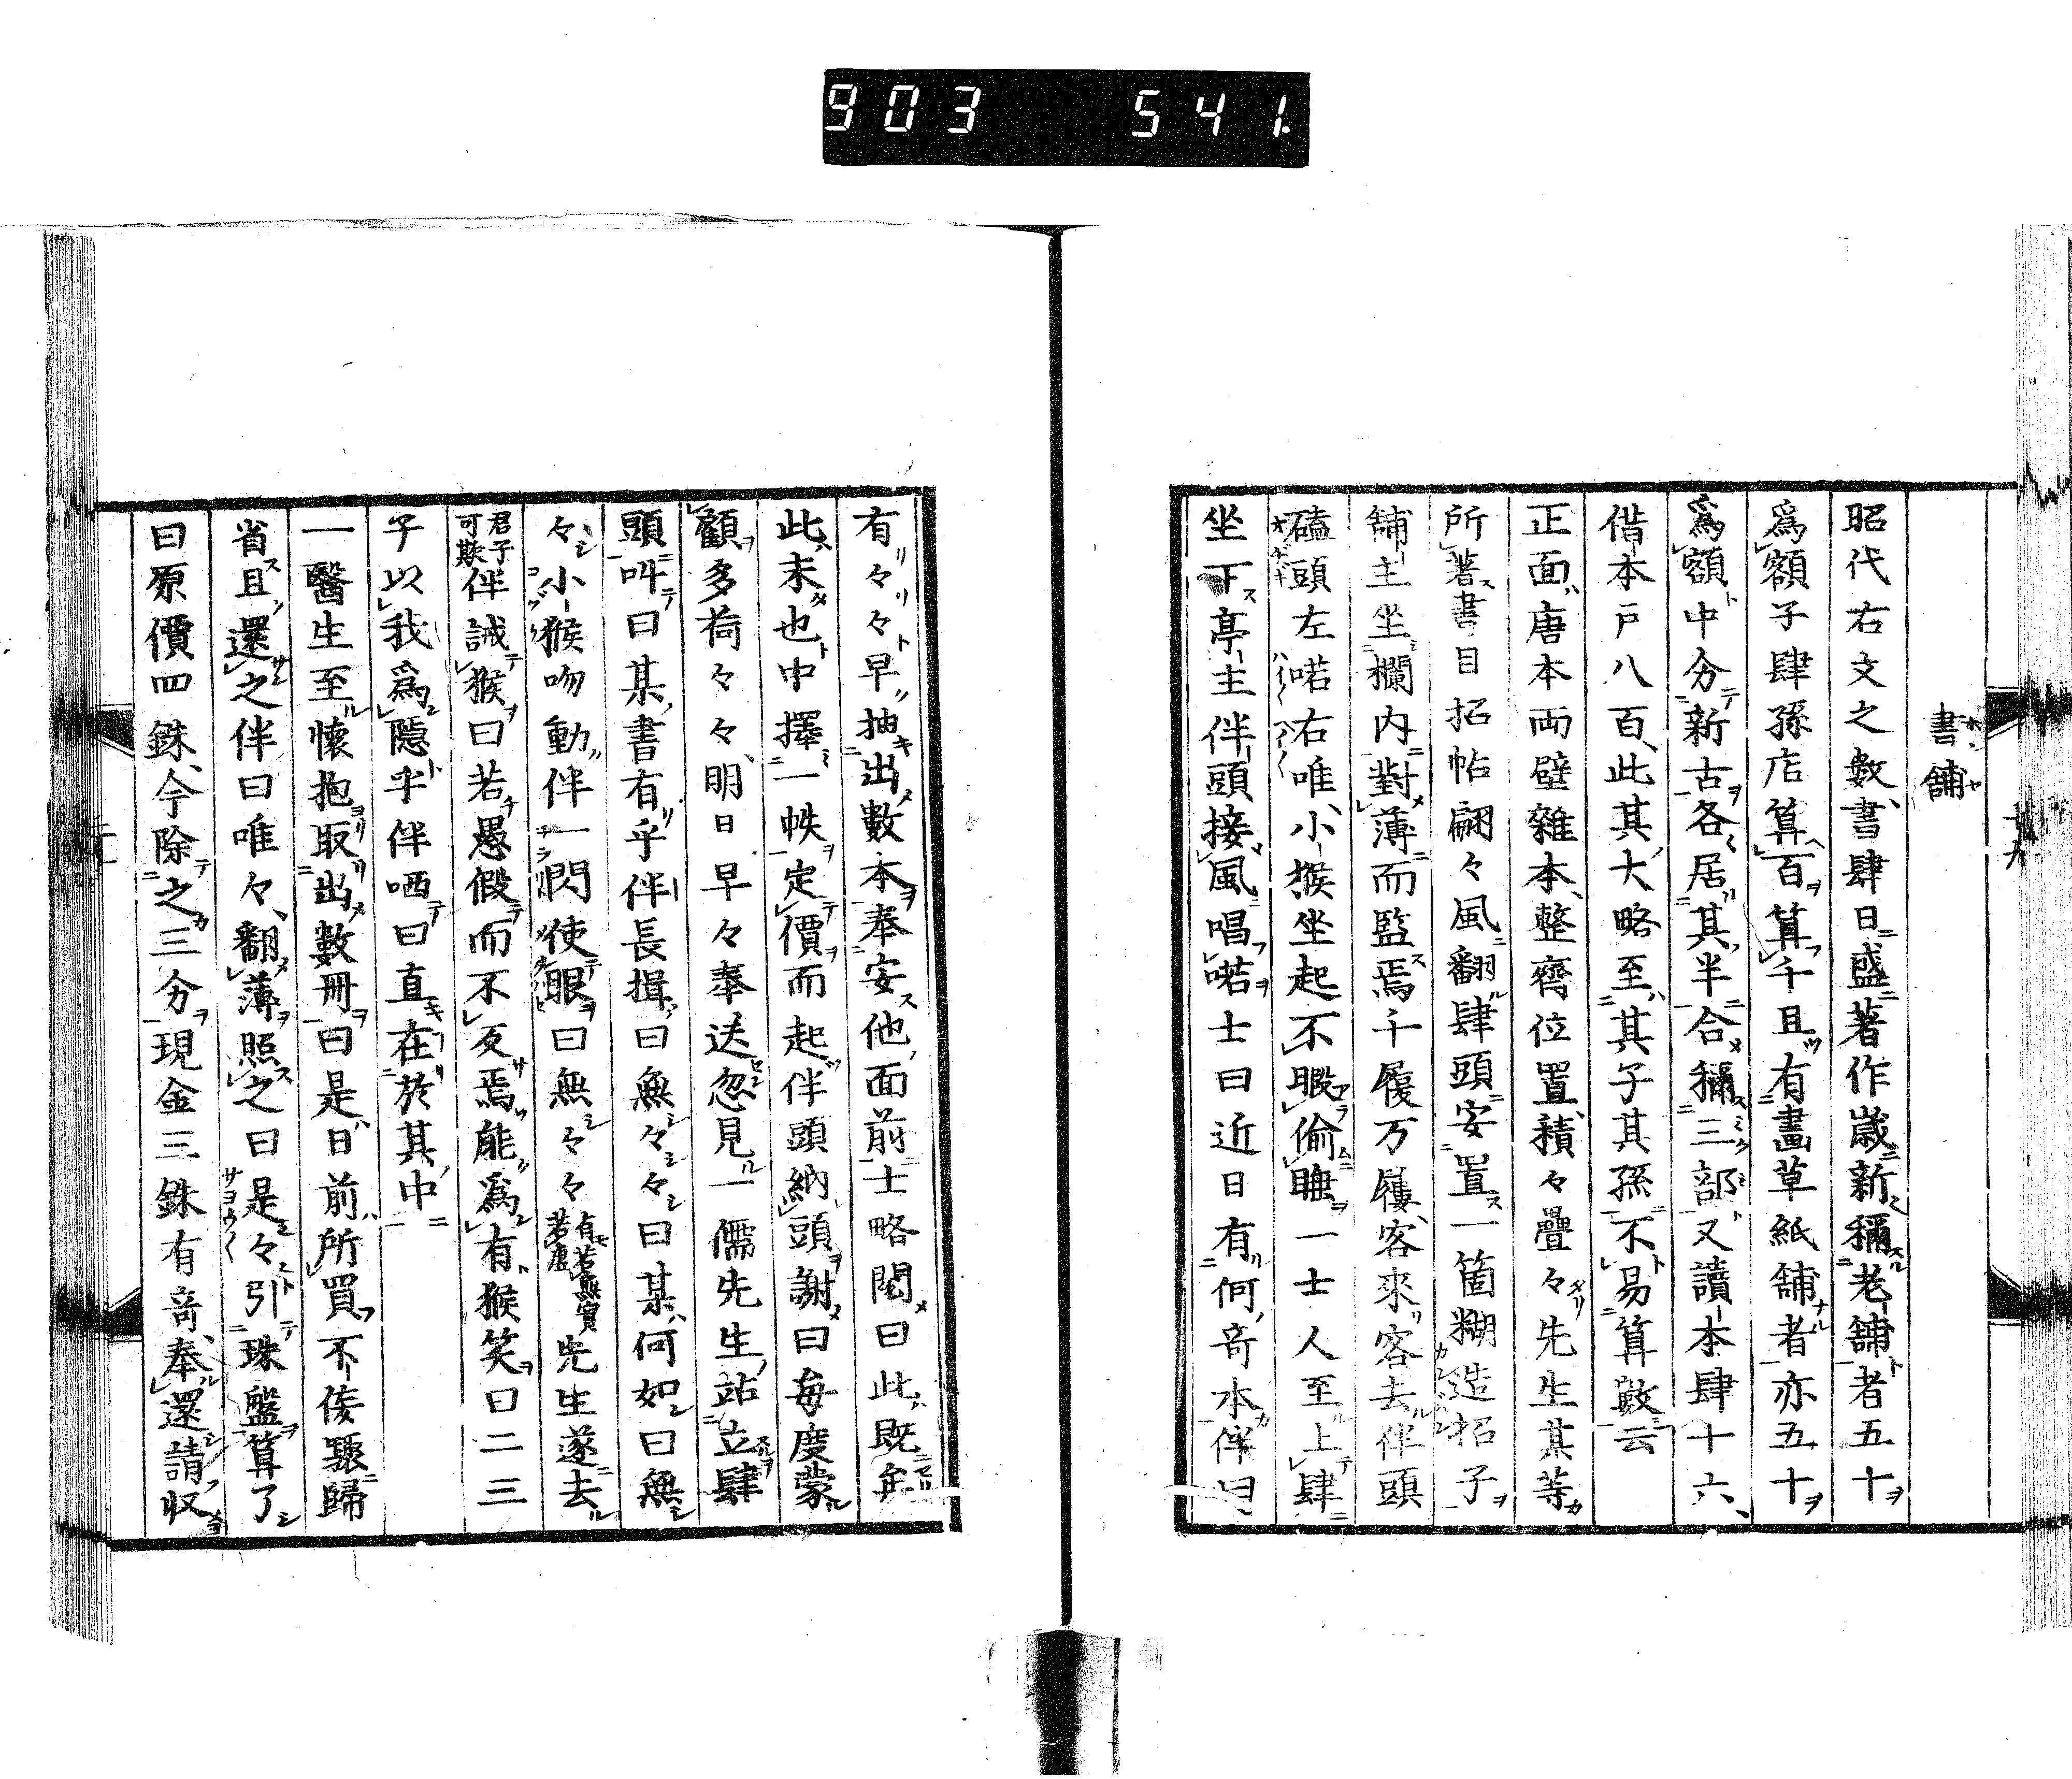 903 541.
書舗
昭代右文之數書肆日盛著作歳新稱老舖者五十
爲額子肆孫店算百算千且有畵草紙舖者亦五十
爲額中分新古各居其半合稱三部又讀本肆十六
偕本戸八百此其大略至其子其孫不易算數云
正面唐本兩壁雜本整齊位置積々疊々先生某等
所著書目招帖翩々風翻肆頭安置一箇糊造招子
舖主坐欄内對薄而監焉千履万屨客來客去伴頭
磕頭左喏右唯小猴坐起不暇偷睡一士人至上肆
坐下亭主伴頭接風唱喏士曰近日有何奇本伴曰
有々々早抽出數本奉安他面前士略閲曰此既
此未也中擇一帙定價而起伴頭納頭謝曰毎度蒙
顧多荷々々明日早々奉送忽見一儒先生站立肆
頭叫曰某書有乎伴長揖曰無々々曰某何如曰無
々小猴吻動伴一閃使眼曰無々々有若無實若虚先生遂去
君子可欺伴誡猴曰若愚假而不反焉能爲有猴笑曰二三
子以我爲隱乎伴哂曰直在於其中
一醫生至懷抱取出數冊曰是日前所買不倭驟歸
省且還之伴曰唯々翻薄照之曰是々引珠盤算了
曰原價四銖今除之三分現金三銖有奇奉還請收